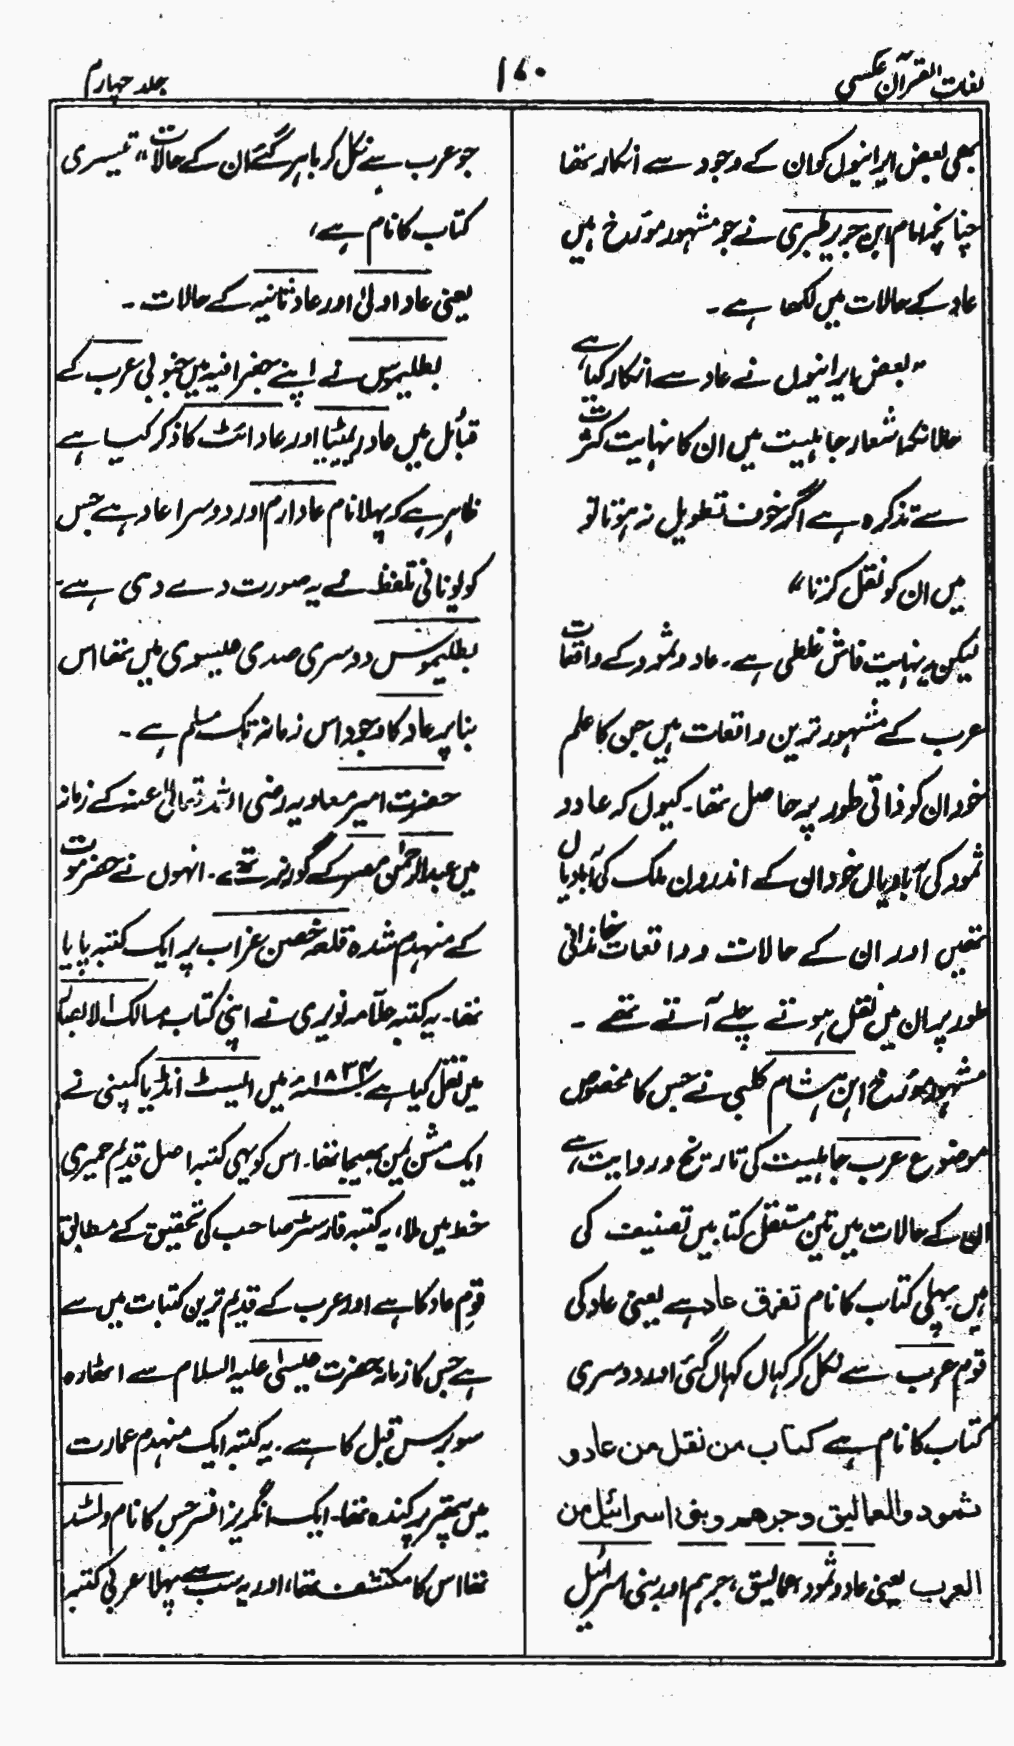 لغات القرآن عکسی
۱۷۰
جلد چہارم
بھی بعض ایرانیوں کو ان کے وجود سے انکار تھا
چنانچہ امام ابن جریر طبری نے جو مشہور مؤرخ ہیں
عاد کے حالات میں لکھا ہے۔
"بعض ایرانیوں نے عاد سے انکار کیا ہے،
حالانکہ اشعار جاہلیت میں ان کا نہایت کثرت
سے تذکرہ ہے اگر خوف تطویل نہ ہوتا تو
میں ان کو نقل کرتا"
لیکن یہ نہایت فاش غلطی ہے۔ عاد و ثمود کے واقعات
عرب کے مشہور ترین واقعات ہیں جن کا علم
خود ان کو ذاتی طور پر حاصل تھا۔ کیوں کہ عاد و
ثمود کی آبادیاں خود ان کے اندرون ملک کی آبادیاں
تھیں اور ان کے حالات و واقعات خاندانی
طور پر ان میں نقل ہوتے چلے آتے تھے۔
مشہور مؤرخ ابن ہشام کلبی نے جس کا مخصوص
موضوع عرب جاہلیت کی تاریخ و روایت ہے،
ان کے حالات میں تین مستقل کتابیں تصنیف کی
ہیں پہلی کتاب کا نام تفرق عاد ہے یعنی عاد کی
قوم عرب سے نکل کر کہاں کہاں گئی اور دوسری
کتاب کا نام ہے کتاب من نقل من عاد و
ثمود والعمالیق وجرھم وبنی اسرائیل من
العرب یعنی عاد و ثمود، عمالیق، جرہم اور بنی اسرائیل
جو عرب سے نکل کر باہر گئے ان کے حالات" تیسری
کتاب کا نام ہے،
یعنی عاد اولیٰ اور عاد ثانیہ کے حالات۔
بطلیموس نے اپنے جغرافیہ میں جنوبی عرب کے
قبائل میں عادریمیٹا اور عادائٹ کا ذکر کیا ہے
ظاہر ہے کہ پہلا نام عاد ارم اور دوسرا عاد ہے جس
کو یونانی تلفظ نے یہ صورت دے دی ہے۔
بطلیموس دوسری صدی عیسوی میں تھا اس
بنا پر عاد کا وجود اس زمانہ تک مسلم ہے۔
حضرت امیر معاویہ رضی اللہ تعالیٰ عنہ کے زمانہ
میں عبدالرحمٰن مصر کے گورنر تھے۔ انہوں نے حضرموت
کے منہدم شدہ قلعہ حصن غراب پر ایک کتبہ پایا
تھا۔ یہ کتبہ علامہ نویری نے اپنی کتاب مسالک الابصار
میں نقل کیا ہے ۱۸۳۴ء میں ایسٹ انڈیا کمپنی نے
ایک مشن یمن بھیجا تھا۔ اس کو یہی کتبہ اصل قدیم حمیری
خط میں ملا، یہ کتبہ فارسٹر صاحب کی تحقیق کے مطابق
قوم عاد کا ہے اور عرب کے قدیم ترین کتبات میں سے
ہے جس کا زمانہ حضرت عیسیٰ علیہ السلام سے اٹھارہ
سو برس قبل کا ہے۔ یہ کتبہ ایک منہدم عمارت
میں پتھر پر کندہ تھا۔ ایک انگریز افسر جس کا نام ولسٹد
تھا اس کا مکتشف تھا، اور یہ سب سے پہلا عربی کتبہ